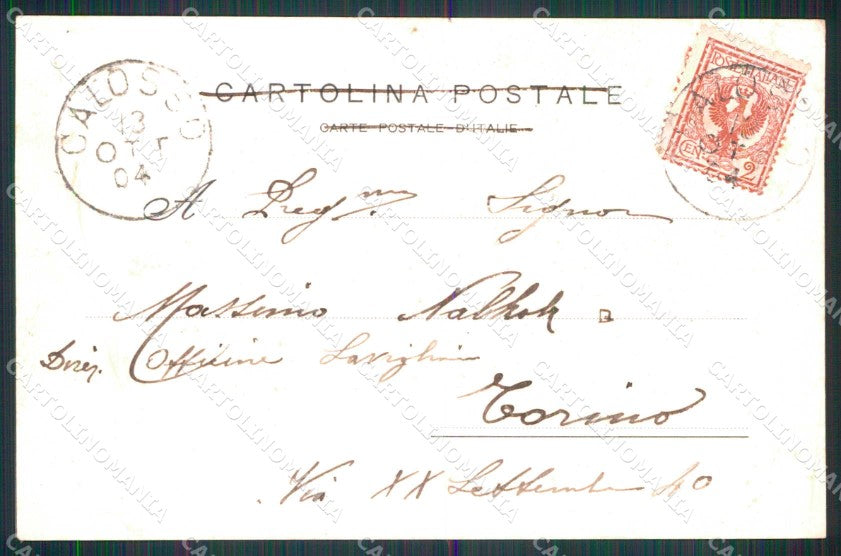 CARTOLINA POSTALE
CARTE POSTALE D'ITALIE
CALOSSO
13
OTT
04
POSTE ITALIANE
CENT 2
A Pregmo. Signor
Massimo
Direz. Officine Savigliano
Torino
Via XX Settembre 40
CARTOLINOMANIA